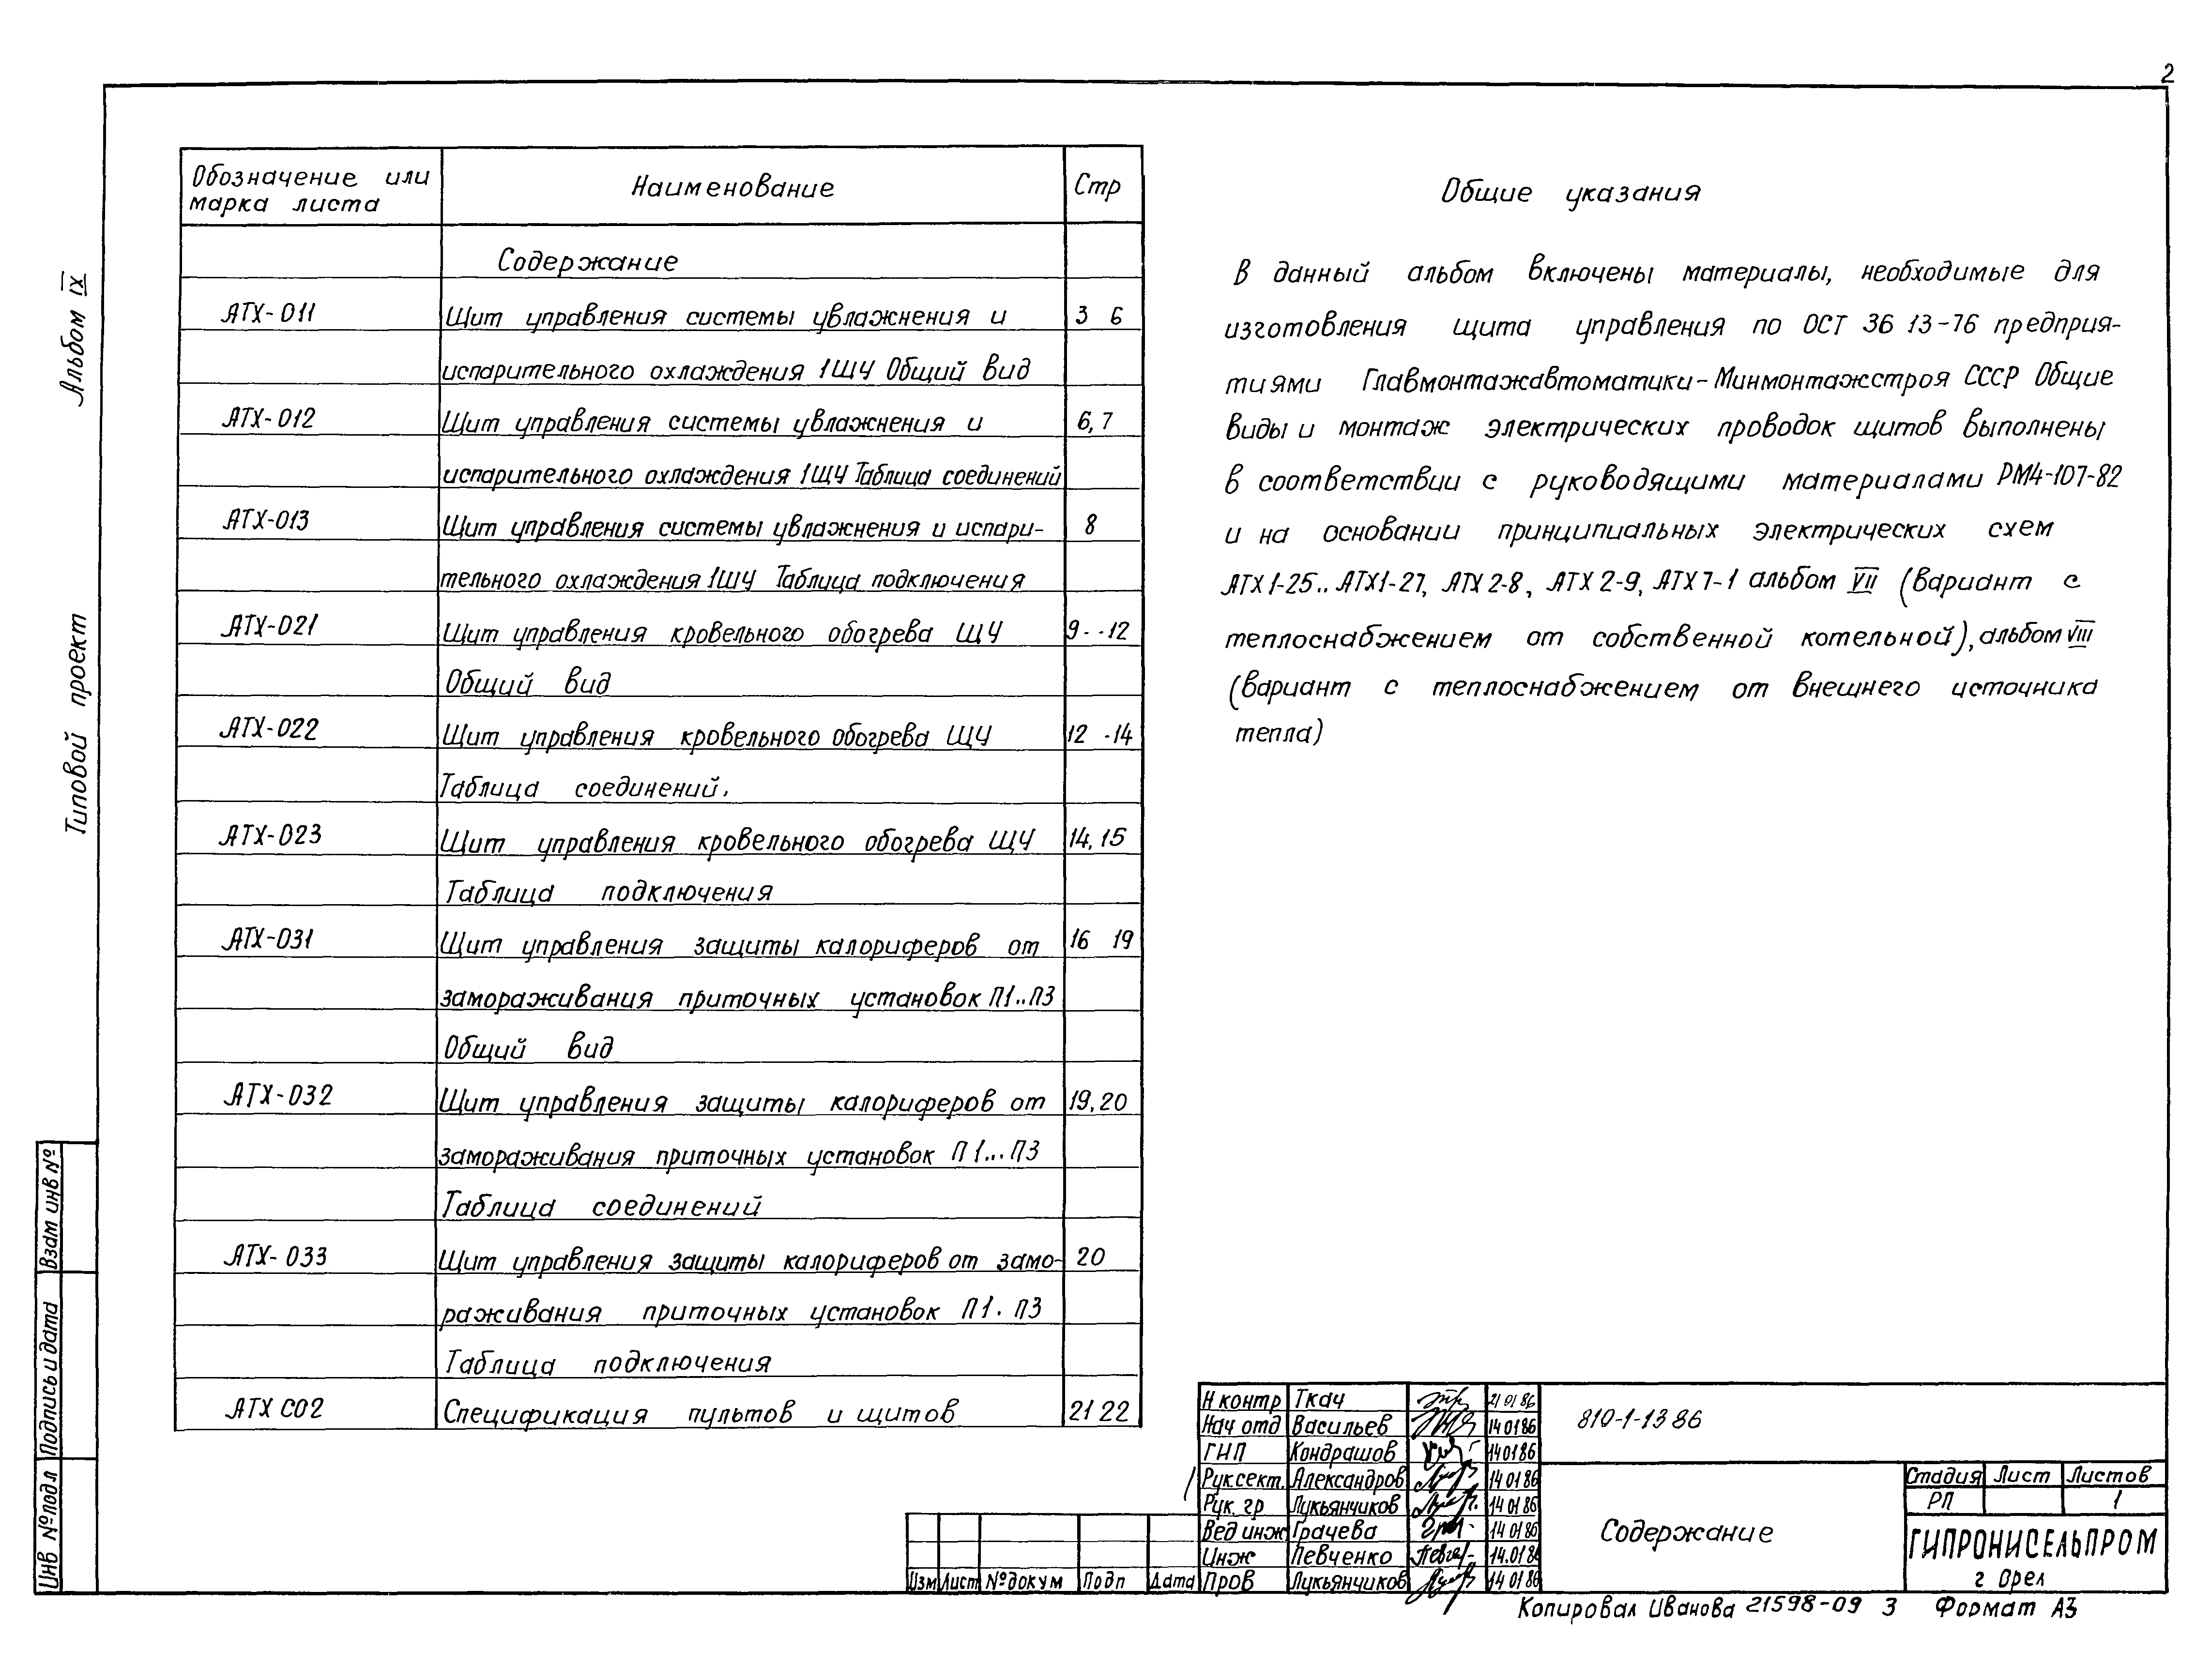 2
Альбом IX
Типовой проект
Взам инв №
Подпись и дата
Инв № подл
Обозначение или марка листа
Наименование
Стр
Содержание
АТХ-011 Щит управления системы увлажнения и 3 6
испарительного охлаждения 1ЩУ Общий вид
АТХ-012 Щит управления системы увлажнения и 6,7
испарительного охлаждения 1ЩУ Таблица соединений
АТХ-013 Щит управления системы увлажнения и испари- 8
тельного охлаждения 1ЩУ Таблица подключения
АТХ-021 Щит управления кровельного обогрева ЩУ 9--12
Общий вид
АТХ-022 Щит управления кровельного обогрева ЩУ 12 -14
Таблица соединений.
АТХ-023 Щит управления кровельного обогрева ЩУ 14,15
Таблица подключения
АТХ-031 Щит управления защиты калориферов от 16 19
замораживания приточных установок П1..П3
Общий вид
АТХ-032 Щит управления защиты калориферов от 19,20
замораживания приточных установок П1...П3
Таблица соединений
АТХ-033 Щит управления защиты калориферов от замо- 20
раживания приточных установок П1. П3
Таблица подключения
АТХ С02 Спецификация пультов и щитов 21 22
Общие указания
В данный альбом включены материалы, необходимые для
изготовления щита управления по ОСТ 36 13-76 предприя-
тиями Главмонтажавтоматики-Минмонтажстроя СССР Общие
виды и монтаж электрических проводок щитов выполнены
в соответствии с руководящими материалами РМ4-107-82
и на основании принципиальных электрических схем
АТХ1-25.. АТХ1-27, АТХ2-8, АТХ2-9, АТХ7-1 альбом VII (вариант с
теплоснабжением от собственной котельной), альбом VIII
(вариант с теплоснабжением от внешнего источника
тепла)
Н контр Ткач 21 01 86
Нач отд Васильев 14 01 86
ГИП Кондрашов 14 01 86
Рук сект. Александров 14 01 86
Рук. гр Лукьянчиков 14 01 86
Вед инж Грачева 14 01 86
Инж Певченко 14.01 86
Изм Лист № докум Подп Дата Пров Лукьянчиков 14 01 86
810-1-13 86
Содержание
Стадия Лист Листов
РП 1
ГИПРОНИСЕЛЬПРОМ
г Орел
Копировал Иванова 21598-09 3 Формат А3